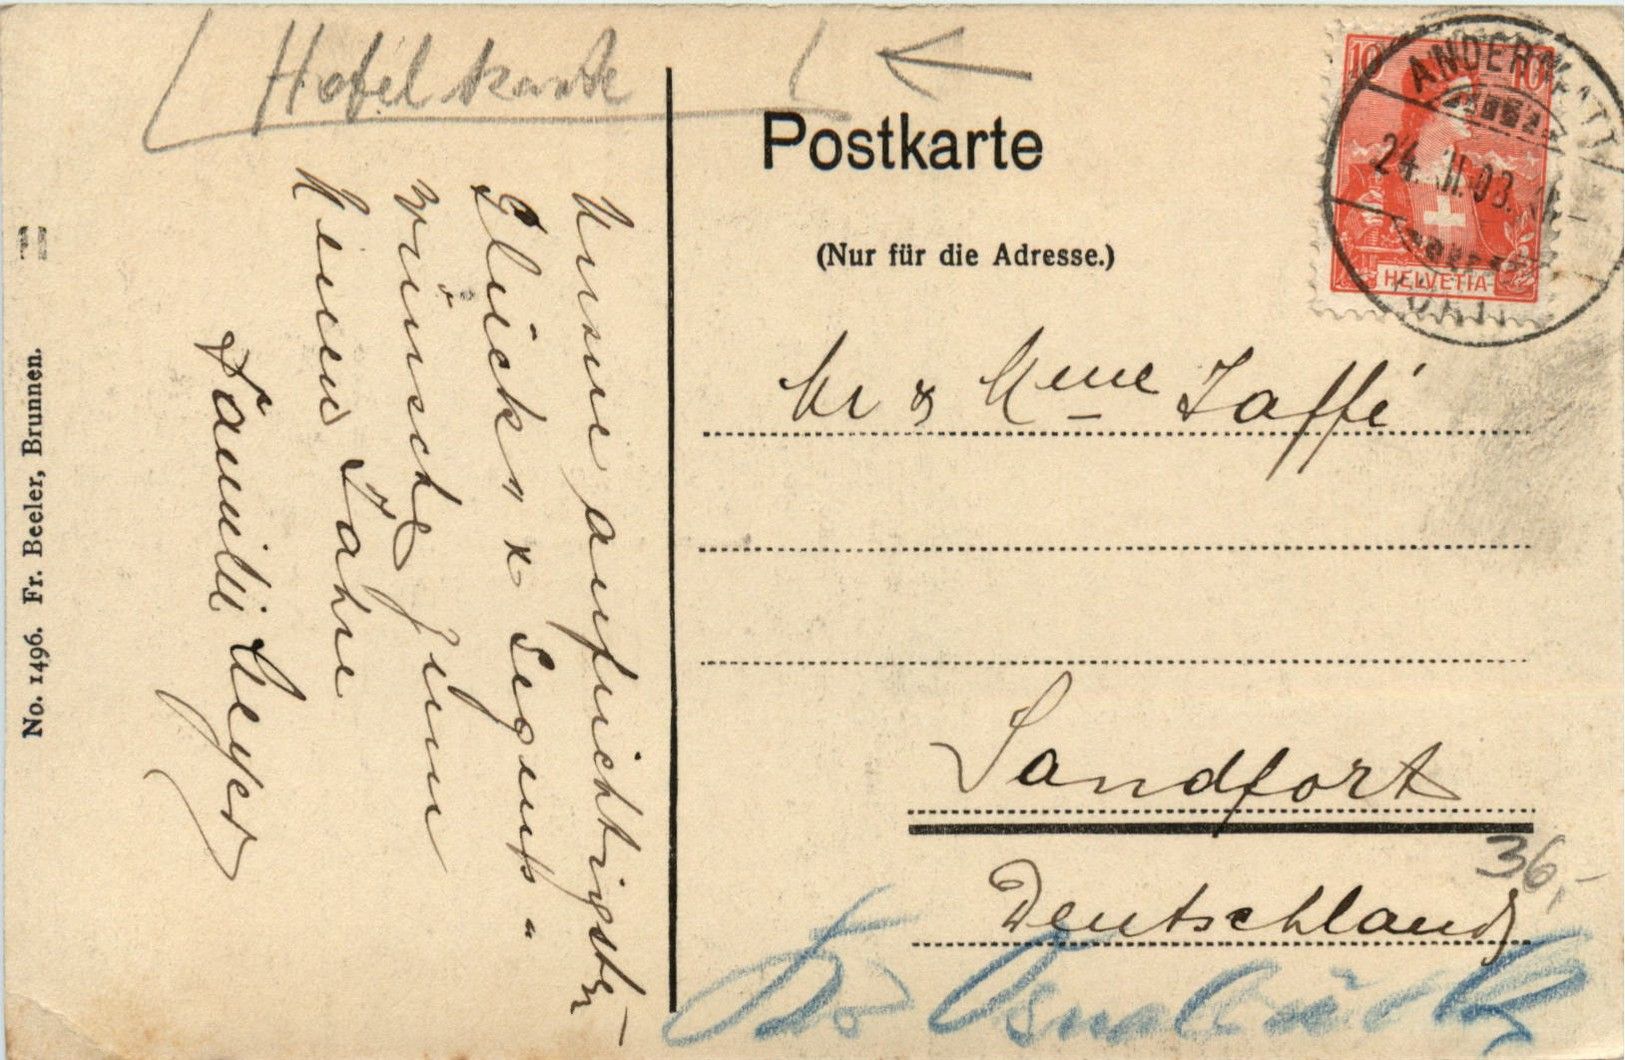 Hotelkarte
Postkarte
(Nur für die Adresse.)
10 10
HELVETIA
ANDERMATT
24. XII. 03.
Mr & Mme Jaffé
Sandfort
Deutschland
36,-
Osnabrück
Unsre aufrichtigsten
Glücks " & Segens "
wünsche zum
Neuen Jahre
Familie Meyer
No. 1496. Fr. Beeler, Brunnen.